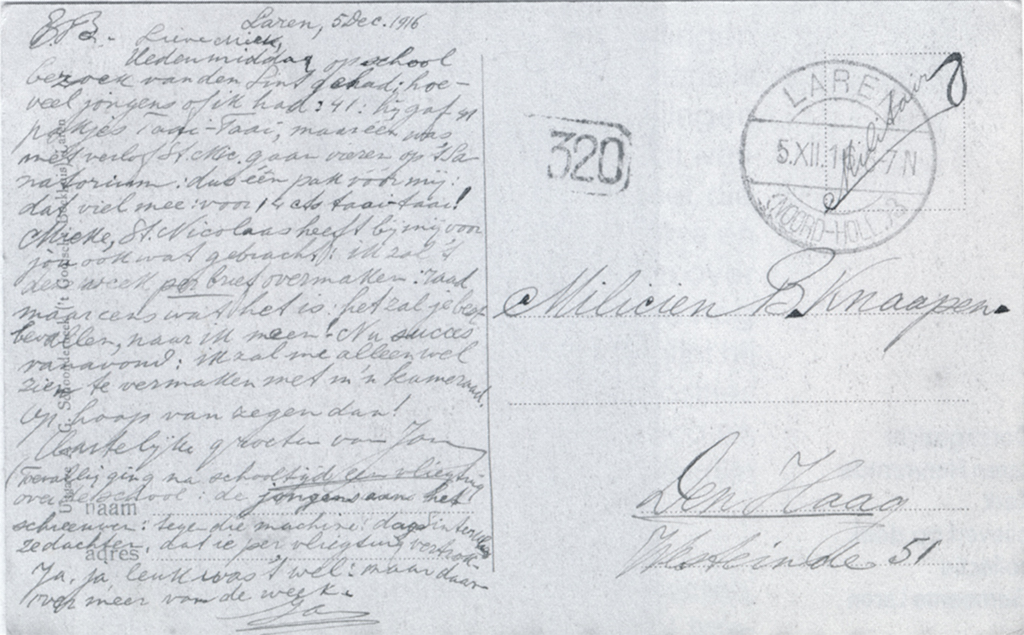 Laren, 5 Dec. 1916
E.B. - Lieve Miek,
Hedenmiddag op school
bezoek van den Sint gehad; hoe-
veel jongens of ik had: 41: hij gaf 41
pakjes Taai-Taai; maar één was
met verlof St. Nic. gaan vieren op 't Sa-
natorium: dus één pak voor mij:
dat viel mee: voor 14 cts taai-taai!
Mieke, St. Nicolaas heeft bij mij voor
jou ook wat gebracht: ik zal 't
deze week per brief overmaken: raad
maar eens wat het is: het zal je best
bevallen, naar ik meen! Nu succes
vanavond: ik zal me alleen wel
zien te vermaken met m'n kameraad.
Op hoop van zegen dan!
Hartelijke groeten van Jan
(Toevallig ging na schooltijd een vliegtuig
over de school: de jongens aan het
schreeuwen tege die machine: da
ze dachten, dat ie per vliegtuig vertrok.
Ja, ja leuk was 't wel: maar daar-
over meer van de week.
Jan
naam
adres
320
LAREN
5.XII.16 6-7 N
(NOORD-HOLL.) 3
Militair
Milicien B. Knaapen.
Den Haag
Westeinde 51